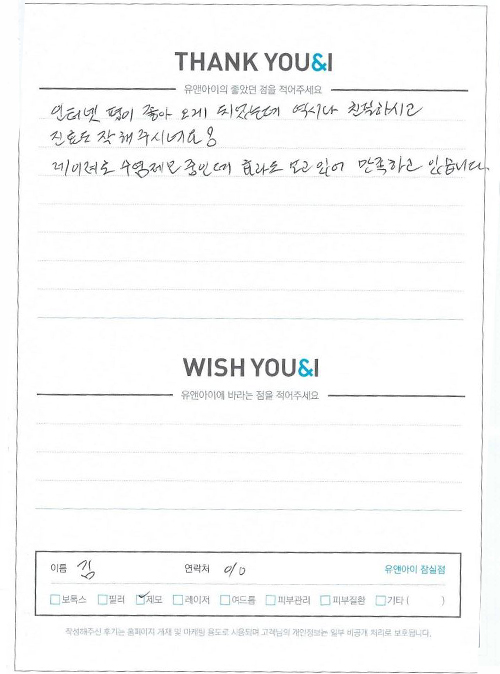 THANK YOU&I
유앤아이의 좋았던 점을 적어주세요
인터넷 평이 좋아 오게 되었는데 역시나 친절하시고
진료도 잘 해주시네요
레이저로 수염제모 중인데 효과도 보고 있어 만족하고 있습니다.
WISH YOU&I
유앤아이에 바라는 점을 적어주세요
이름 김 연락처 010 유앤아이 잠실점
보톡스 필러 제모 레이저 여드름 피부관리 피부질환 기타 ( )
작성해주신 후기는 홈페이지 게재 및 마케팅 용도로 사용되며 고객님의 개인정보는 일부 비공개 처리로 보호됩니다.